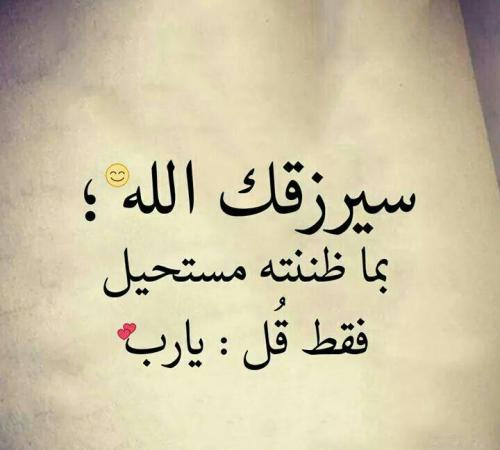 سيرزقك الله😊؛
بما ظننته مستحيل
فقط قُل : يارب💕